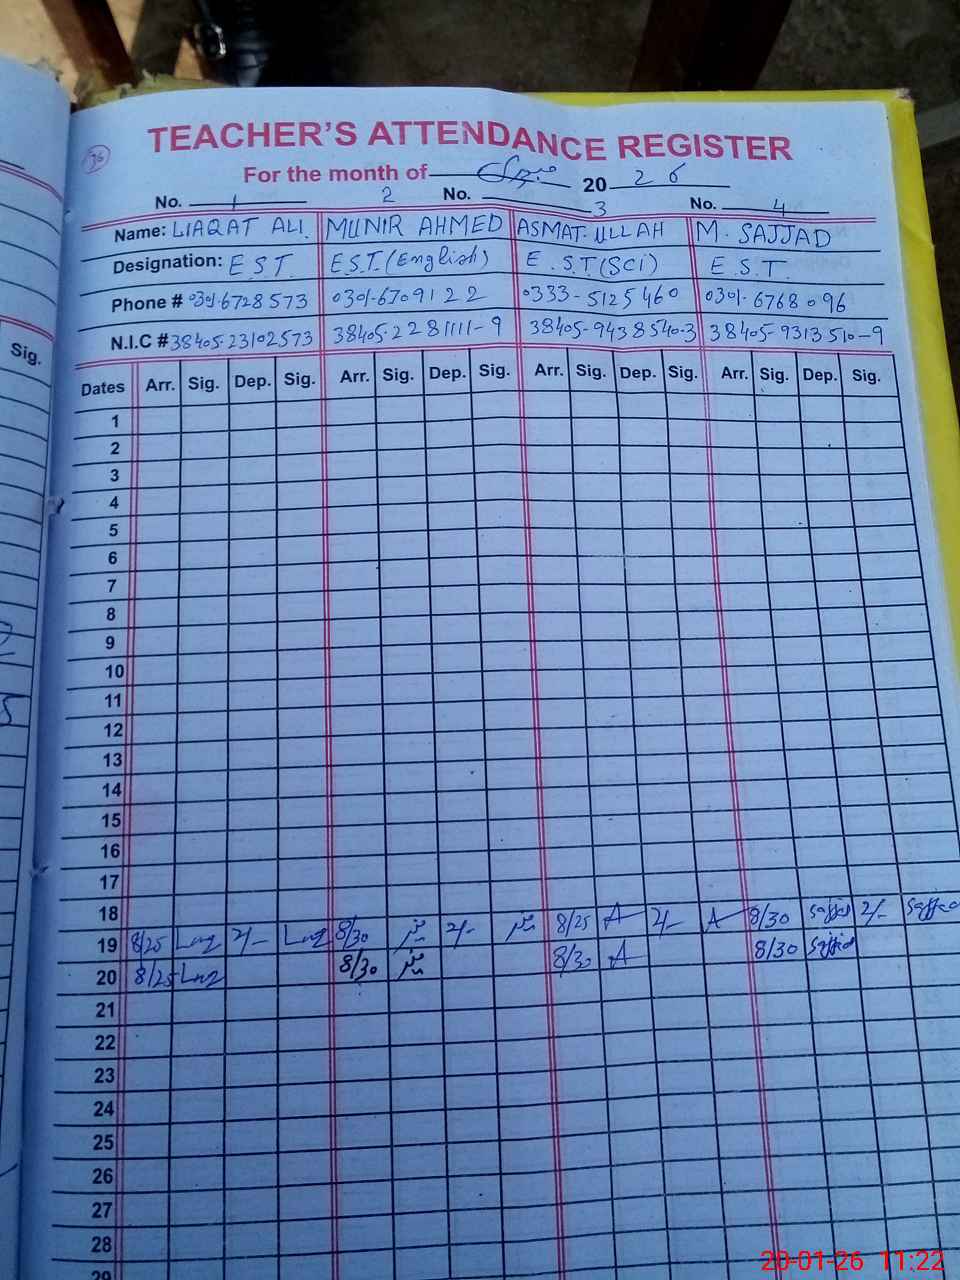 TEACHER'S ATTENDANCE REGISTER
36
For the month of جنوری 20 26
No. 1 2 No. 3 No. 4
Name: LIAQAT ALI. MUNIR AHMED ASMAT ULLAH M. SAJJAD
Designation: E S T. E.S.T. (English) E.S.T (SCI) E.S.T.
Phone # 0301-6728573 0301-6709122 0333-5125460 0301-6768096
N.I.C # 38405-23102573 38405-2281111-9 38405-9438540-3 38405-9313510-9
Sig.
Dates Arr. Sig. Dep. Sig. Arr. Sig. Dep. Sig. Arr. Sig. Dep. Sig. Arr. Sig. Dep. Sig.
1
2
3
4
5
6
7
8
9
10
11
12
13
14
15
16
17
18
19 8/25 2/- 8/30 منیر 2/- منیر 8/25 A 2/- A 8/30 Sajjad 2/- Sajjad
20 8/25 8/30 منیر 8/30 A 8/30 Sajjad
21
22
23
24
25
26
27
28
29
20-01-26 11:22